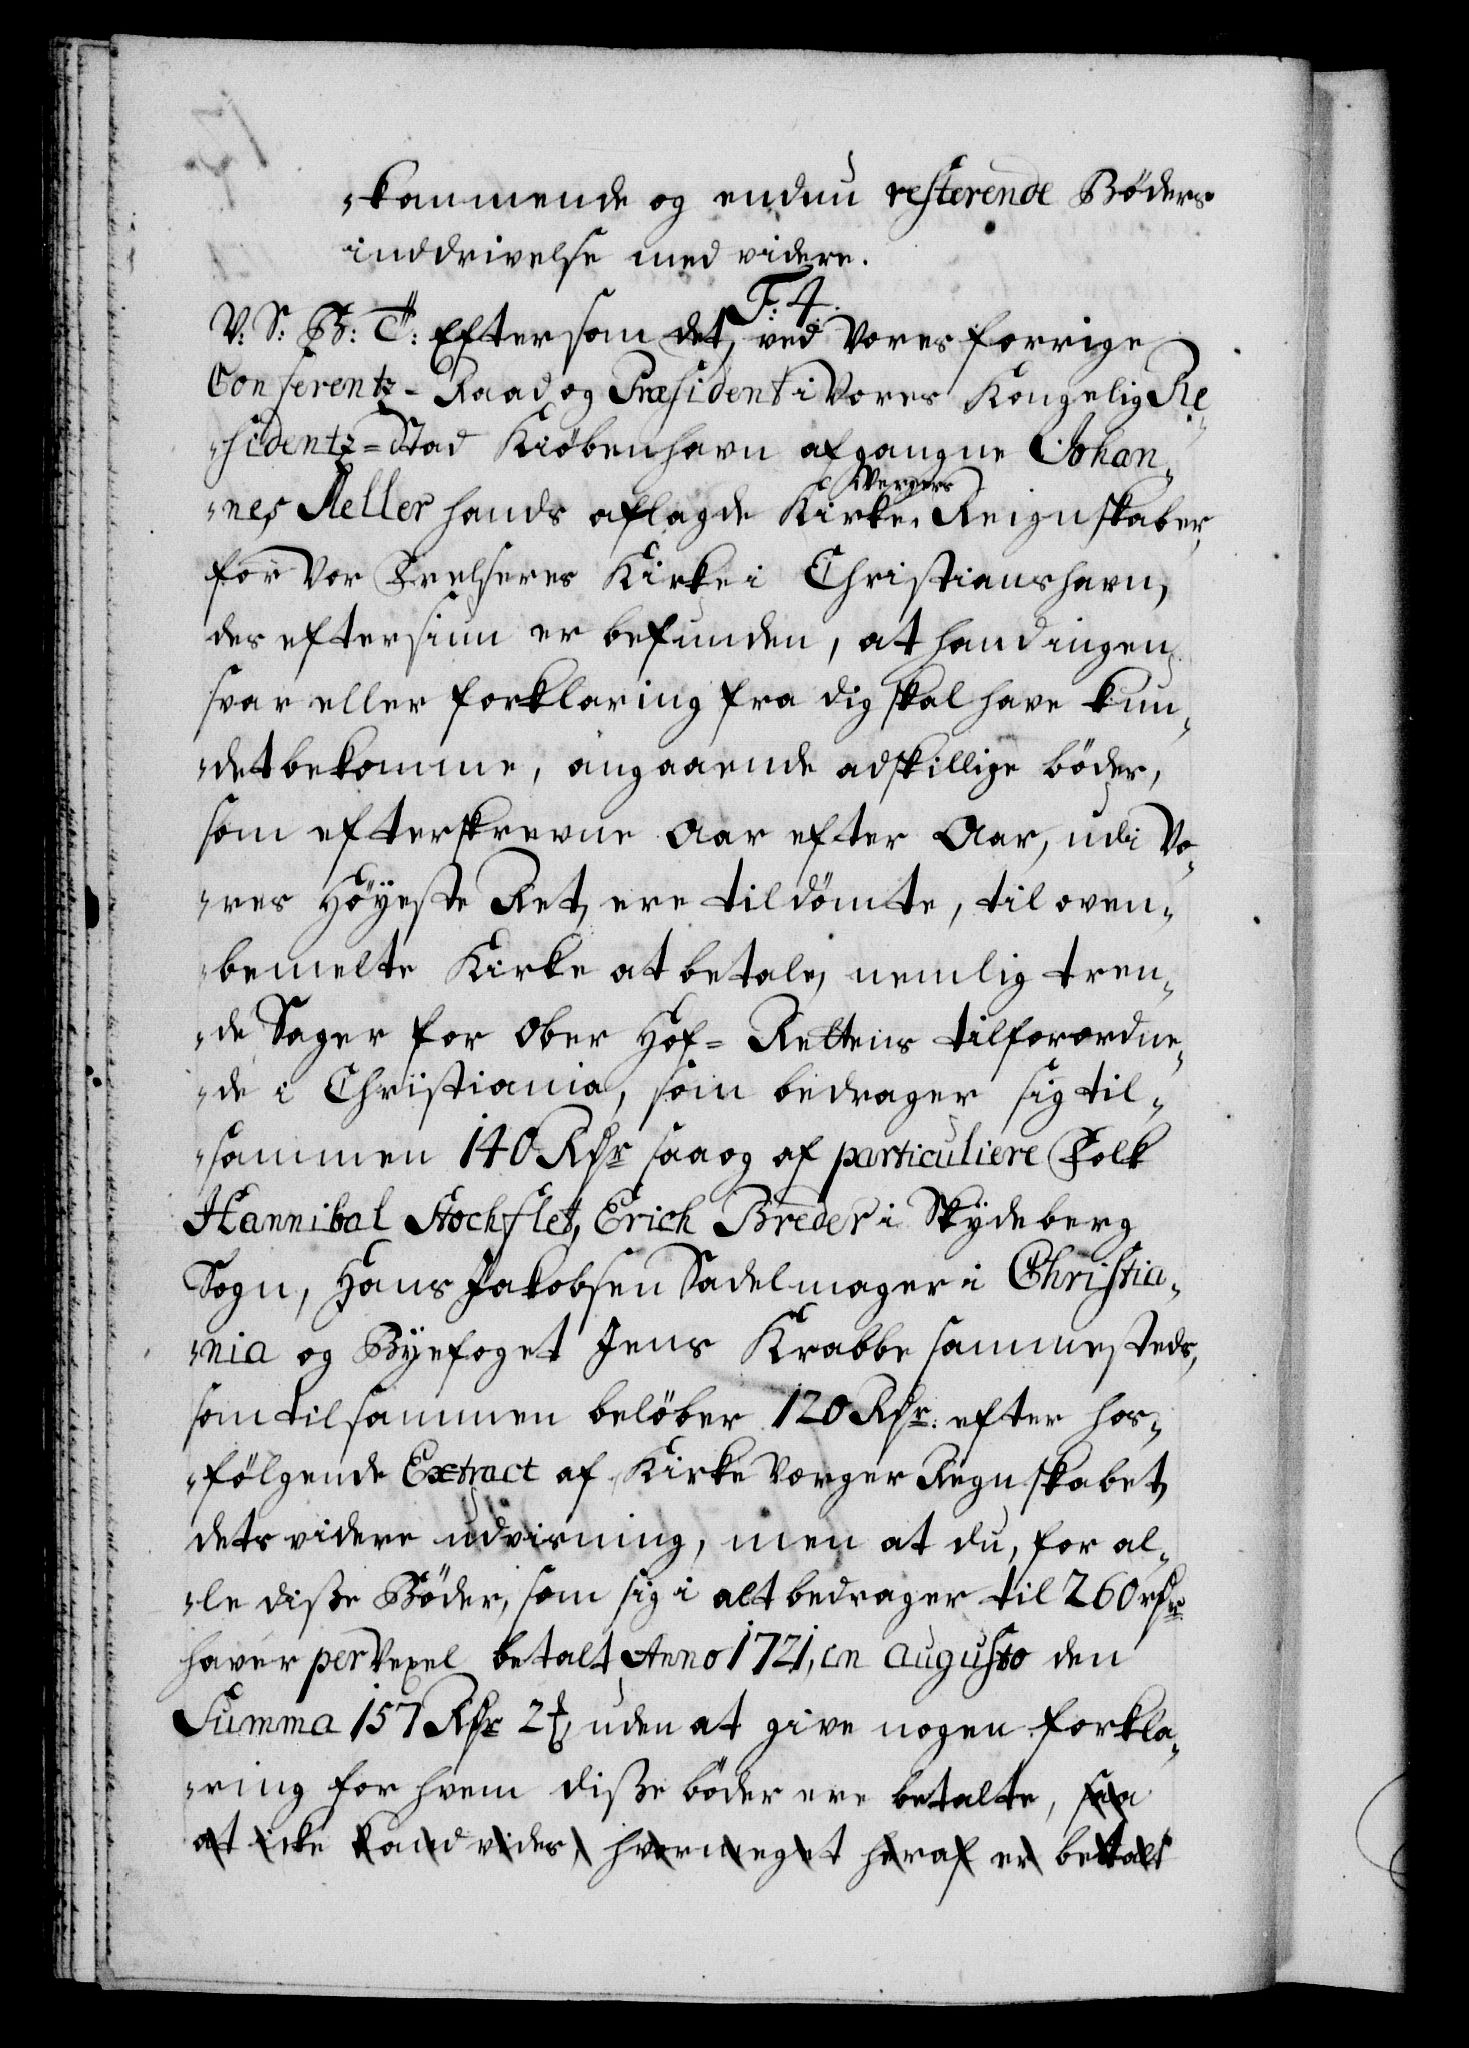 -kommende og endnu resterende Bøders
inddrivelse med videre.
F: 4.
V: S: B: T: Eftersom det, ved Vores forrige
Conferentz-Raad og Præsident i Vores Kongelig Re-
-sidentz-Stad Kiøbenhavn afgangne Johan-
Wergers
-nes Meller hands aflagde Kirke-Reignskaber,
for Vor Frelseres Kirke i Christianshavn,
des eftersiun er befunden, at hand ingen
svar eller forklaring fra dig skal have kun-
-det bekomme, angaaende adskillige böder,
som efterskrevne Aar efter Aar, udi Vo-
-res Höyeste Ret, ere tildömte, til oven-
-bemelte Kirke at betale, nemlig tren-
-de Sager for Ober Hof-Rettens tilforordne-
-de i Christiania, som bedrager sig til-
-sammen 140 Rdr saa og af particuliere Folk
Hannibal Stochflet, Erich Breder i Skydeberg
Sogn, Hans Jakobsen Sadelmager i Christia-
-nia og Byefoget Jens Krabbe sammesteds,
som tilsammen belöber 120 Rdr. efter hos-
-fölgende Extract af Kirke Værger Regnskabet,
dets videre udvisning, men at du, for al-
-le disse Bøder, som sig i alt bedrager til 260 rdr
haver per Vexel betalt Anno 1721, in augusto den
Summa 157 Rdr 2 ꝑ, uden at give nogen forkla-
-ring for hvem disse böder ere betalte, saa
at icke kand vides, hvor meget heraf er betalt